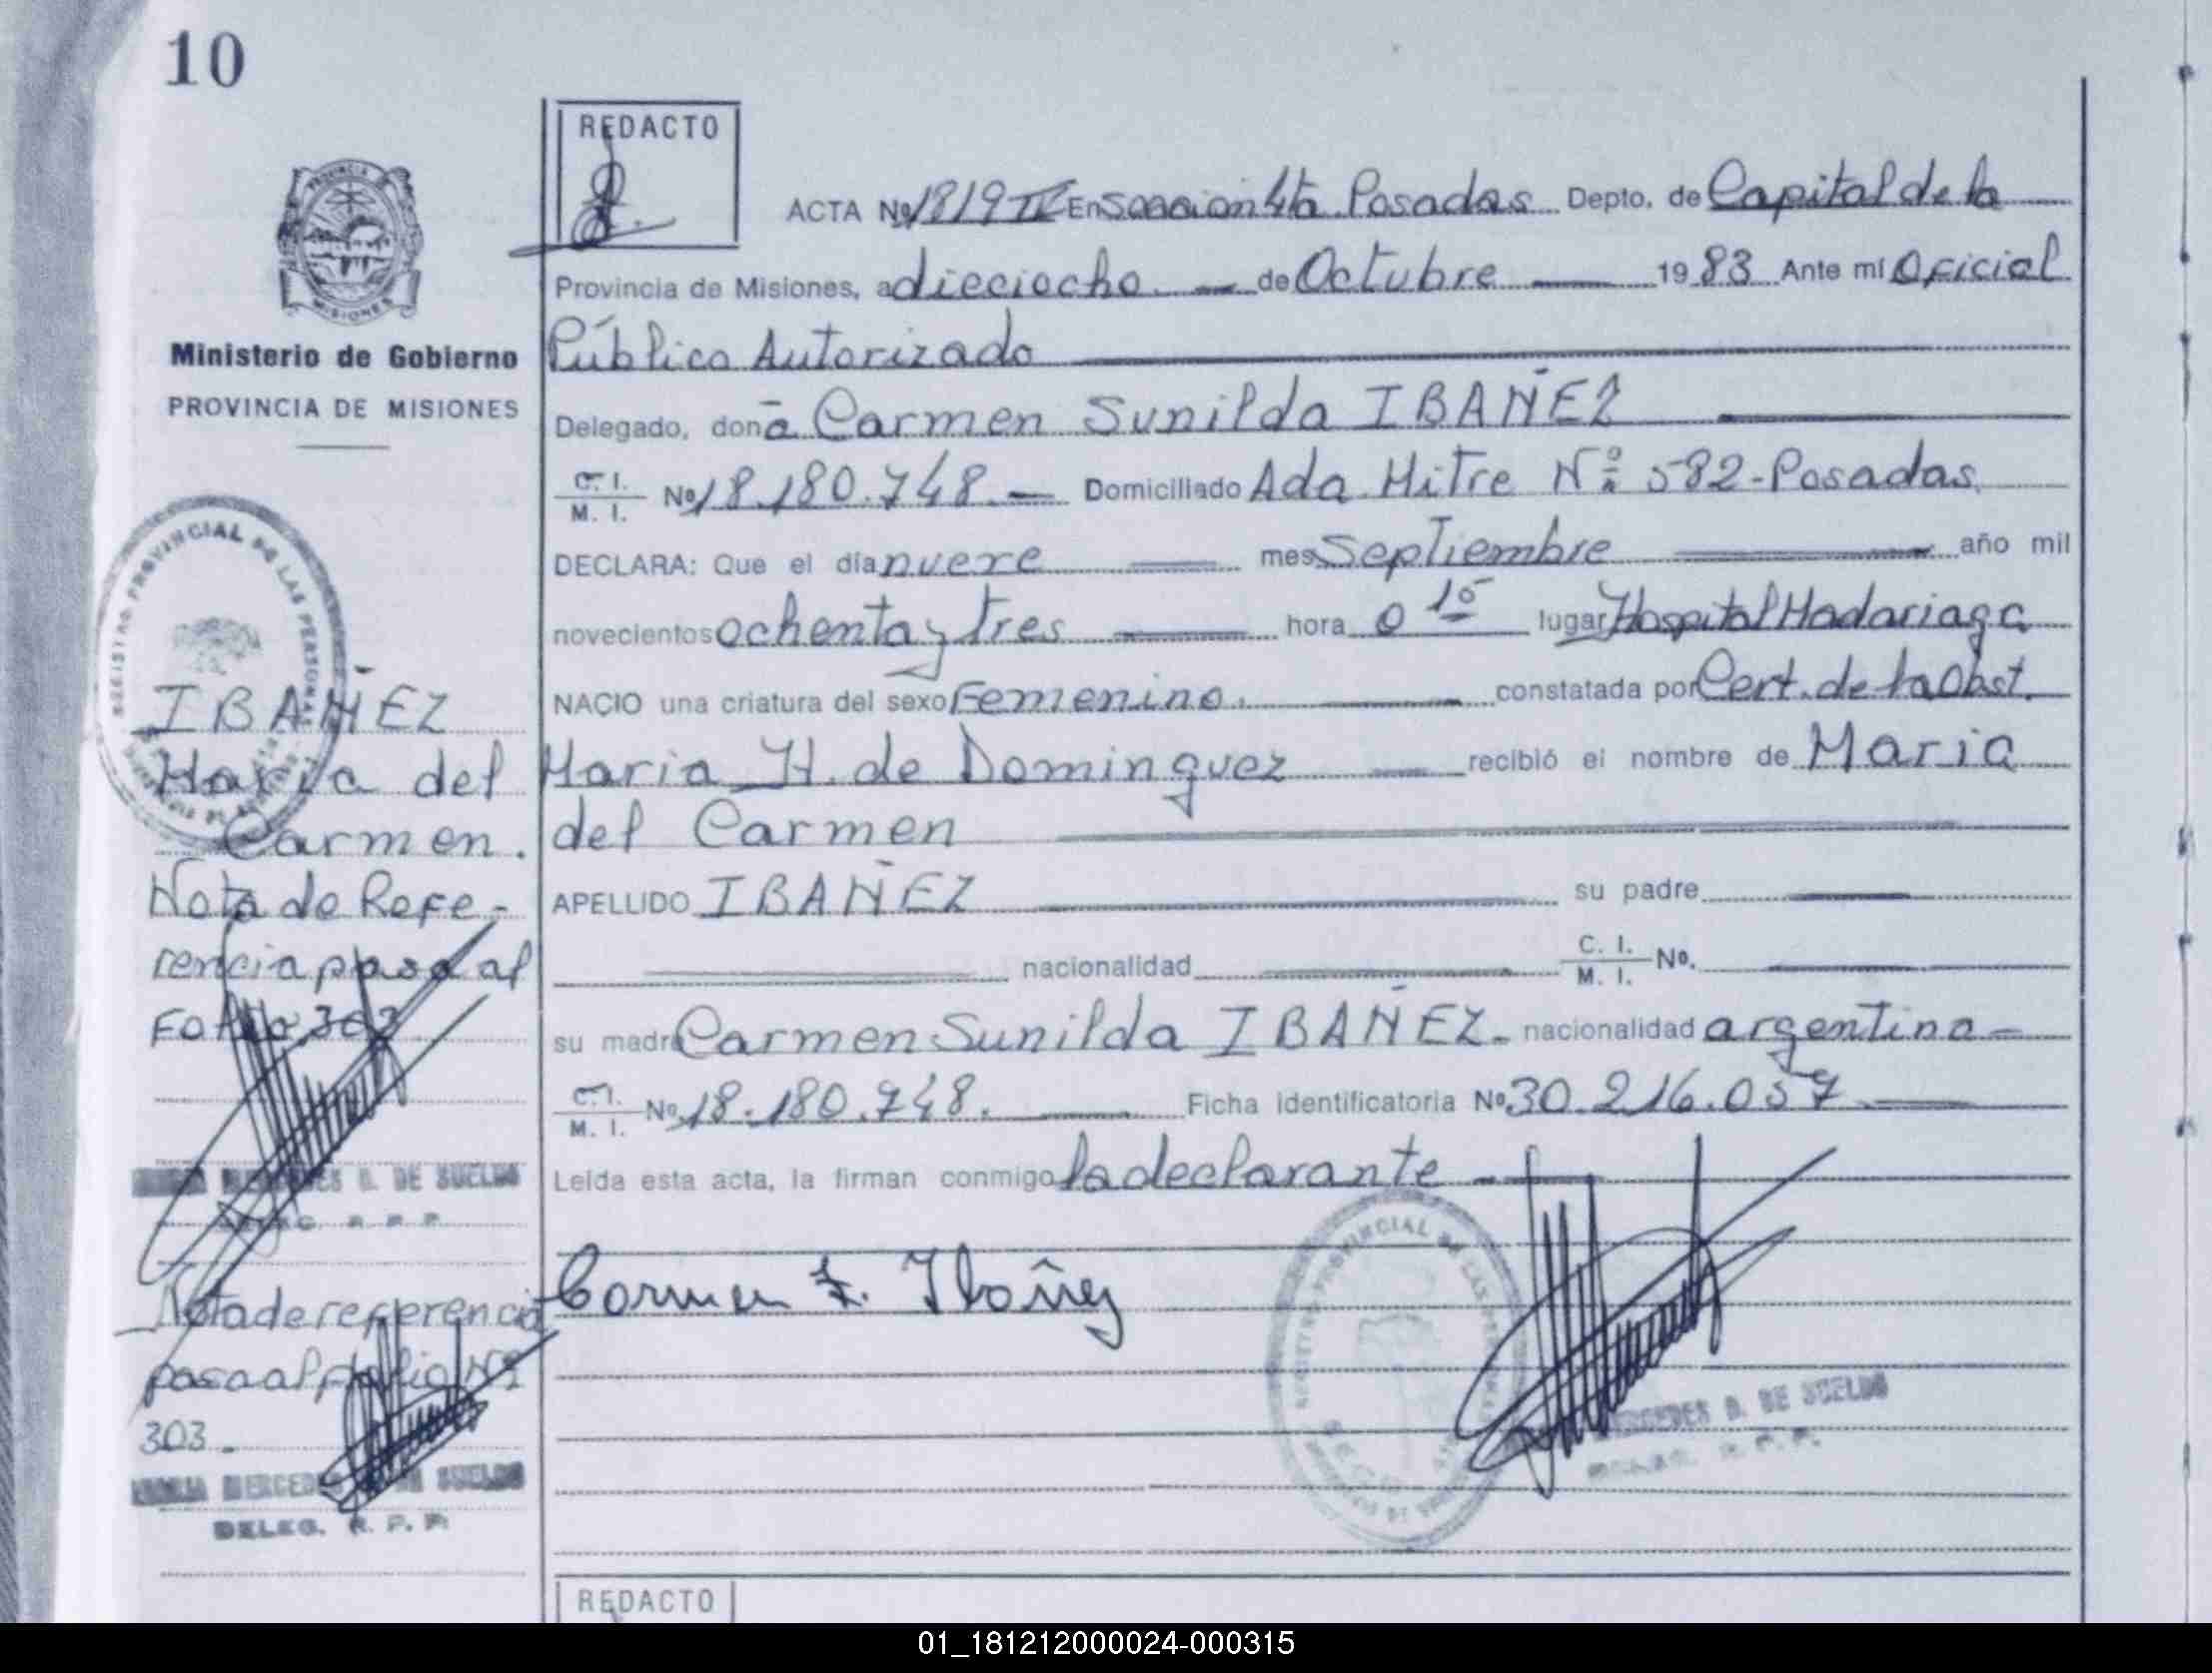 10
REDACTO
ACTA Nº 1819 IV En Sección 4ta. Posadas Depto. de Capital de la
Provincia de Misiones, a dieciocho de Octubre 1983 Ante mí Oficial
Público Autorizado
Delegado, doña Carmen Sunilda IBAÑEZ
C. I. / M. I. Nº 18.180.748. Domiciliado Ada. Mitre Nº 582-Posadas
DECLARA: Que el día nueve mes Septiembre año mil
novecientos ochenta y tres hora 0 15 lugar Hospital Madariaga
NACIO una criatura del sexo Femenino. constatada por Cert. de la Obst.
Maria H. de Dominguez recibió el nombre de Maria
del Carmen
APELLIDO IBAÑEZ su padre
nacionalidad C. I. / M. I. Nº.
su madre Carmen Sunilda IBAÑEZ. nacionalidad argentina
C. I. / M. I. Nº 18.180.748. Ficha identificatoria Nº 30.216.057
Leída esta acta, la firman conmigo la declarante
Carmen S. Ibañez
REGISTRO PROVINCIAL DE LAS PERSONAS
MERCEDES D. DE SUELDO
DELEG. R. P. P.
PROVINCIA DE
MISIONES
Ministerio de Gobierno
PROVINCIA DE MISIONES
REGISTRO PROVINCIAL DE LAS PERSONAS
IBAÑEZ
Maria del
Carmen.
Nota de Refe-
rencia pasa al
Folio 303
MERCEDES D. DE SUELDO
DELEG. R. P. P.
Nota de referencia
pasa al folio Nº
303.
MARIA MERCEDES D. DE SUELDO
DELEG. R. P. P.
REDACTO
01_181212000024-000315